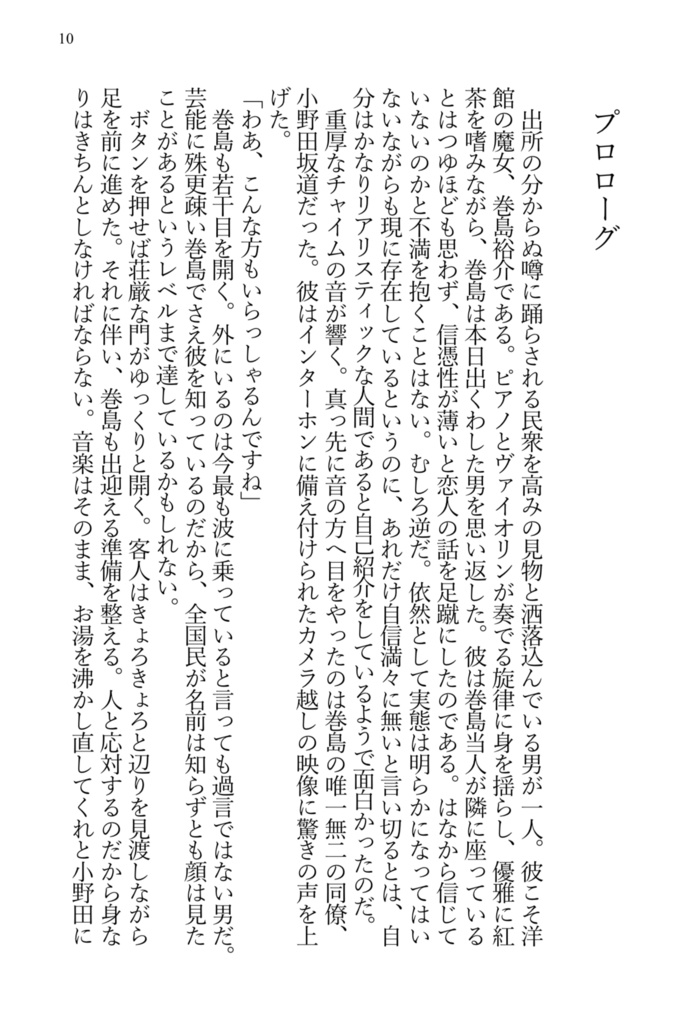 10
プロローグ
　出所の分からぬ噂に踊らされる民衆を高みの見物と洒落込んでいる男が一人。彼こそ洋
館の魔女、巻島裕介である。ピアノとヴァイオリンが奏でる旋律に身を揺らし、優雅に紅
茶を嗜みながら、巻島は本日出くわした男を思い返した。彼は巻島当人が隣に座っている
とはつゆほども思わず、信憑性が薄いと恋人の話を足蹴にしたのである。はなから信じて
いないのかと不満を抱くことはない。むしろ逆だ。依然として実態は明らかになってはい
ないながらも現に存在しているというのに、あれだけ自信満々に無いと言い切るとは、自
分はかなりリアリスティックな人間であると自己紹介をしているようで面白かったのだ。
　重厚なチャイムの音が響く。真っ先に音の方へ目をやったのは巻島の唯一無二の同僚、
小野田坂道だった。彼はインターホンに備え付けられたカメラ越しの映像に驚きの声を上
げた。
「わあ、こんな方もいらっしゃるんですね」
　巻島も若干目を開く。外にいるのは今最も波に乗っていると言っても過言ではない男だ。
芸能に殊更疎い巻島でさえ彼を知っているのだから、全国民が名前は知らずとも顔は見た
ことがあるというレベルまで達しているかもしれない。
　ボタンを押せば荘厳な門がゆっくりと開く。客人はきょろきょろと辺りを見渡しながら
足を前に進めた。それに伴い、巻島も出迎える準備を整える。人と応対するのだから身な
りはきちんとしなければならない。音楽はそのまま、お湯を沸かし直してくれと小野田に